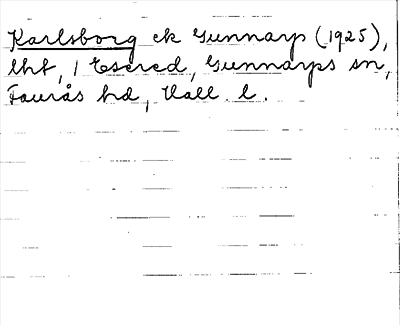 Karlsborg ek Gunnarp (1925),
lht, / Esered, Gunnarps sn,
Faurås hd, Hall. l.